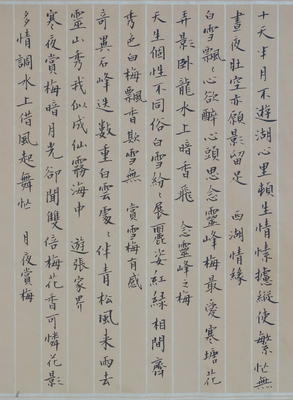 十天半月不遊湖心里頓生情愫攄縱使繁忙無
晝夜肚空亦願影留足 西湖情緣
白雪飄飄心欲醉心頭思念靈峰梅最愛寒塘花
弄影卧龍水上暗香飛 念靈峰之梅
天生個性不同俗白雪紛紛展麗姿紅綠相間齊
秀色白梅飄香欺雪無 賞雪梅有感
奇異石峰迭數重白雲處處伴青松風来雨去
靈山秀我似成仙霧海中 遊張家界
寒夜賞梅暗月光卻聞雙倍梅花香可憐花影
多情調水上借風起舞忙 月夜賞梅